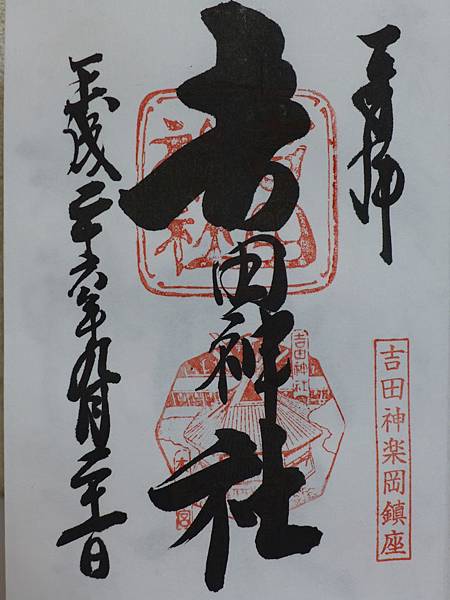 奉拝
吉田神楽岡鎮座
吉田神社
吉田神社
本宮
平成二十六年九月二十一日